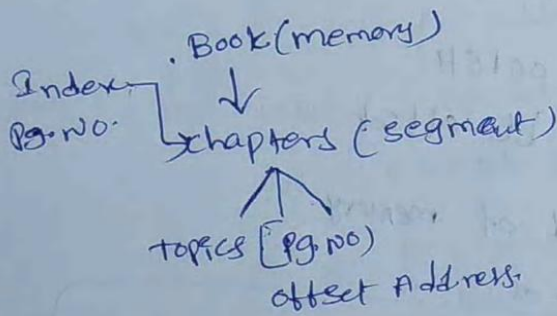 . Book (memory)
Index
Pg. No.
chapters (segment)
topics [Pg. No)
offset Address.
of memory